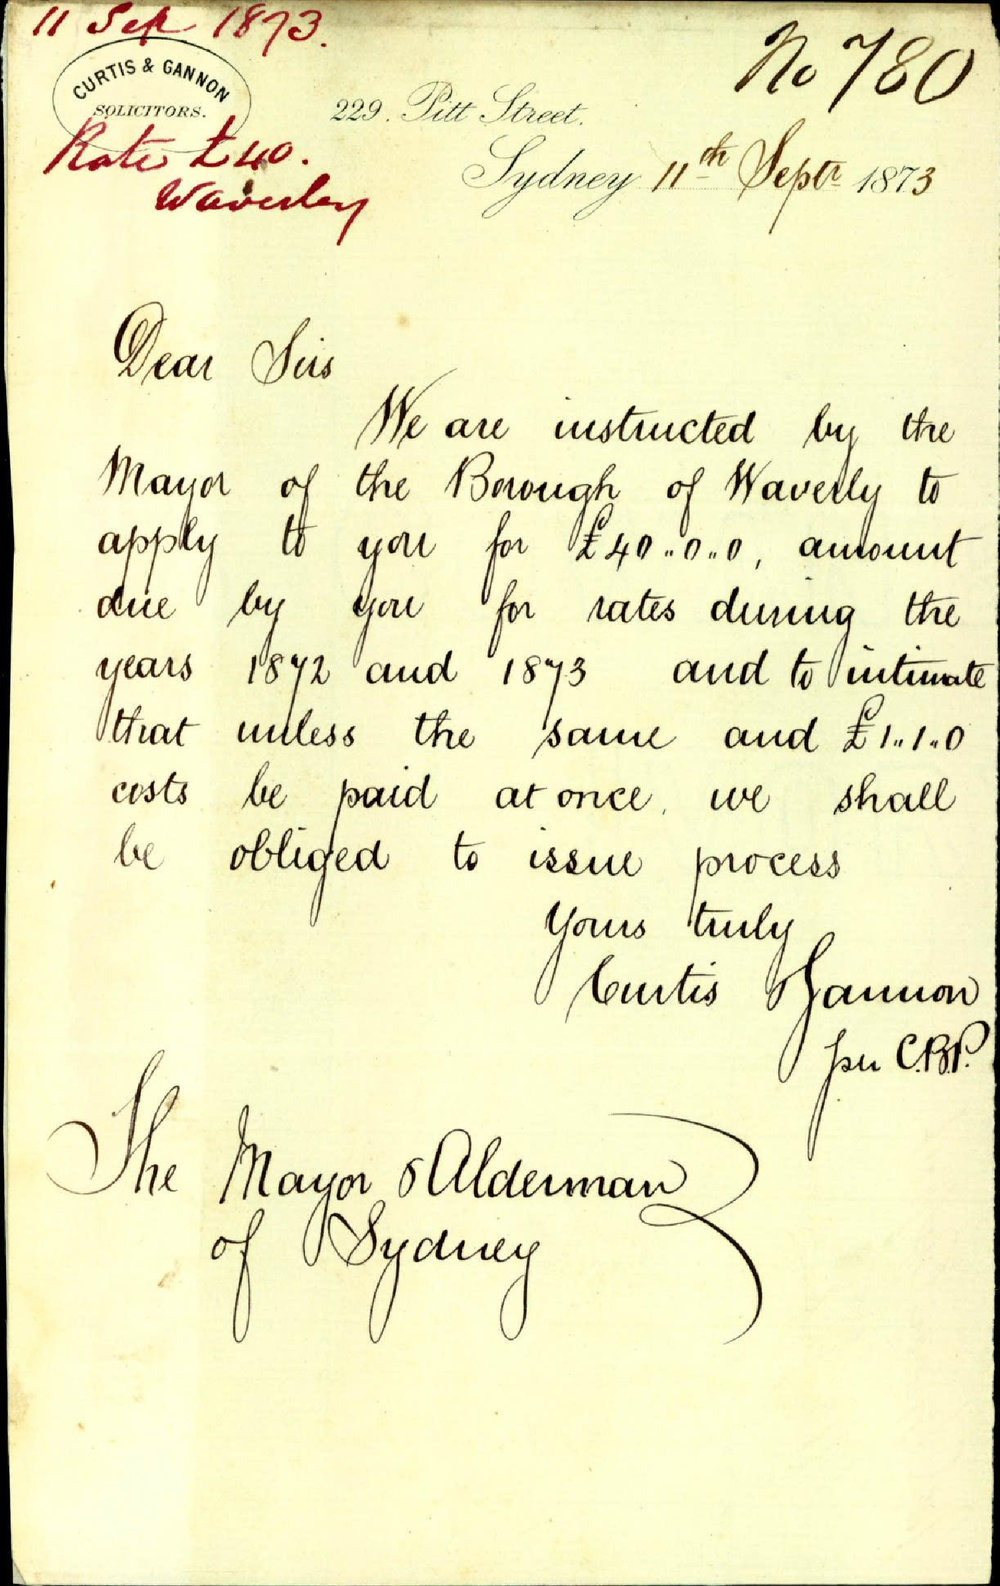 11 Sep 1873.
No 780
CURTIS & GANNON
SOLICITORS.
229. Pitt Street.
Rate £40.
Waverley
Sydney 11th Septr 1873
Dear Sirs
We are instructed by the
Mayor of the Borough of Waverly to
apply to you for £40..0..0, amount
due by you for rates during the
years 1872 and 1873 and to intimate
that unless the same and £1..1..0
costs be paid at once, we shall
be obliged to issue process
Yours truly
Curtis & Gannon
per C.B.P.
The Mayor & Alderman
of Sydney